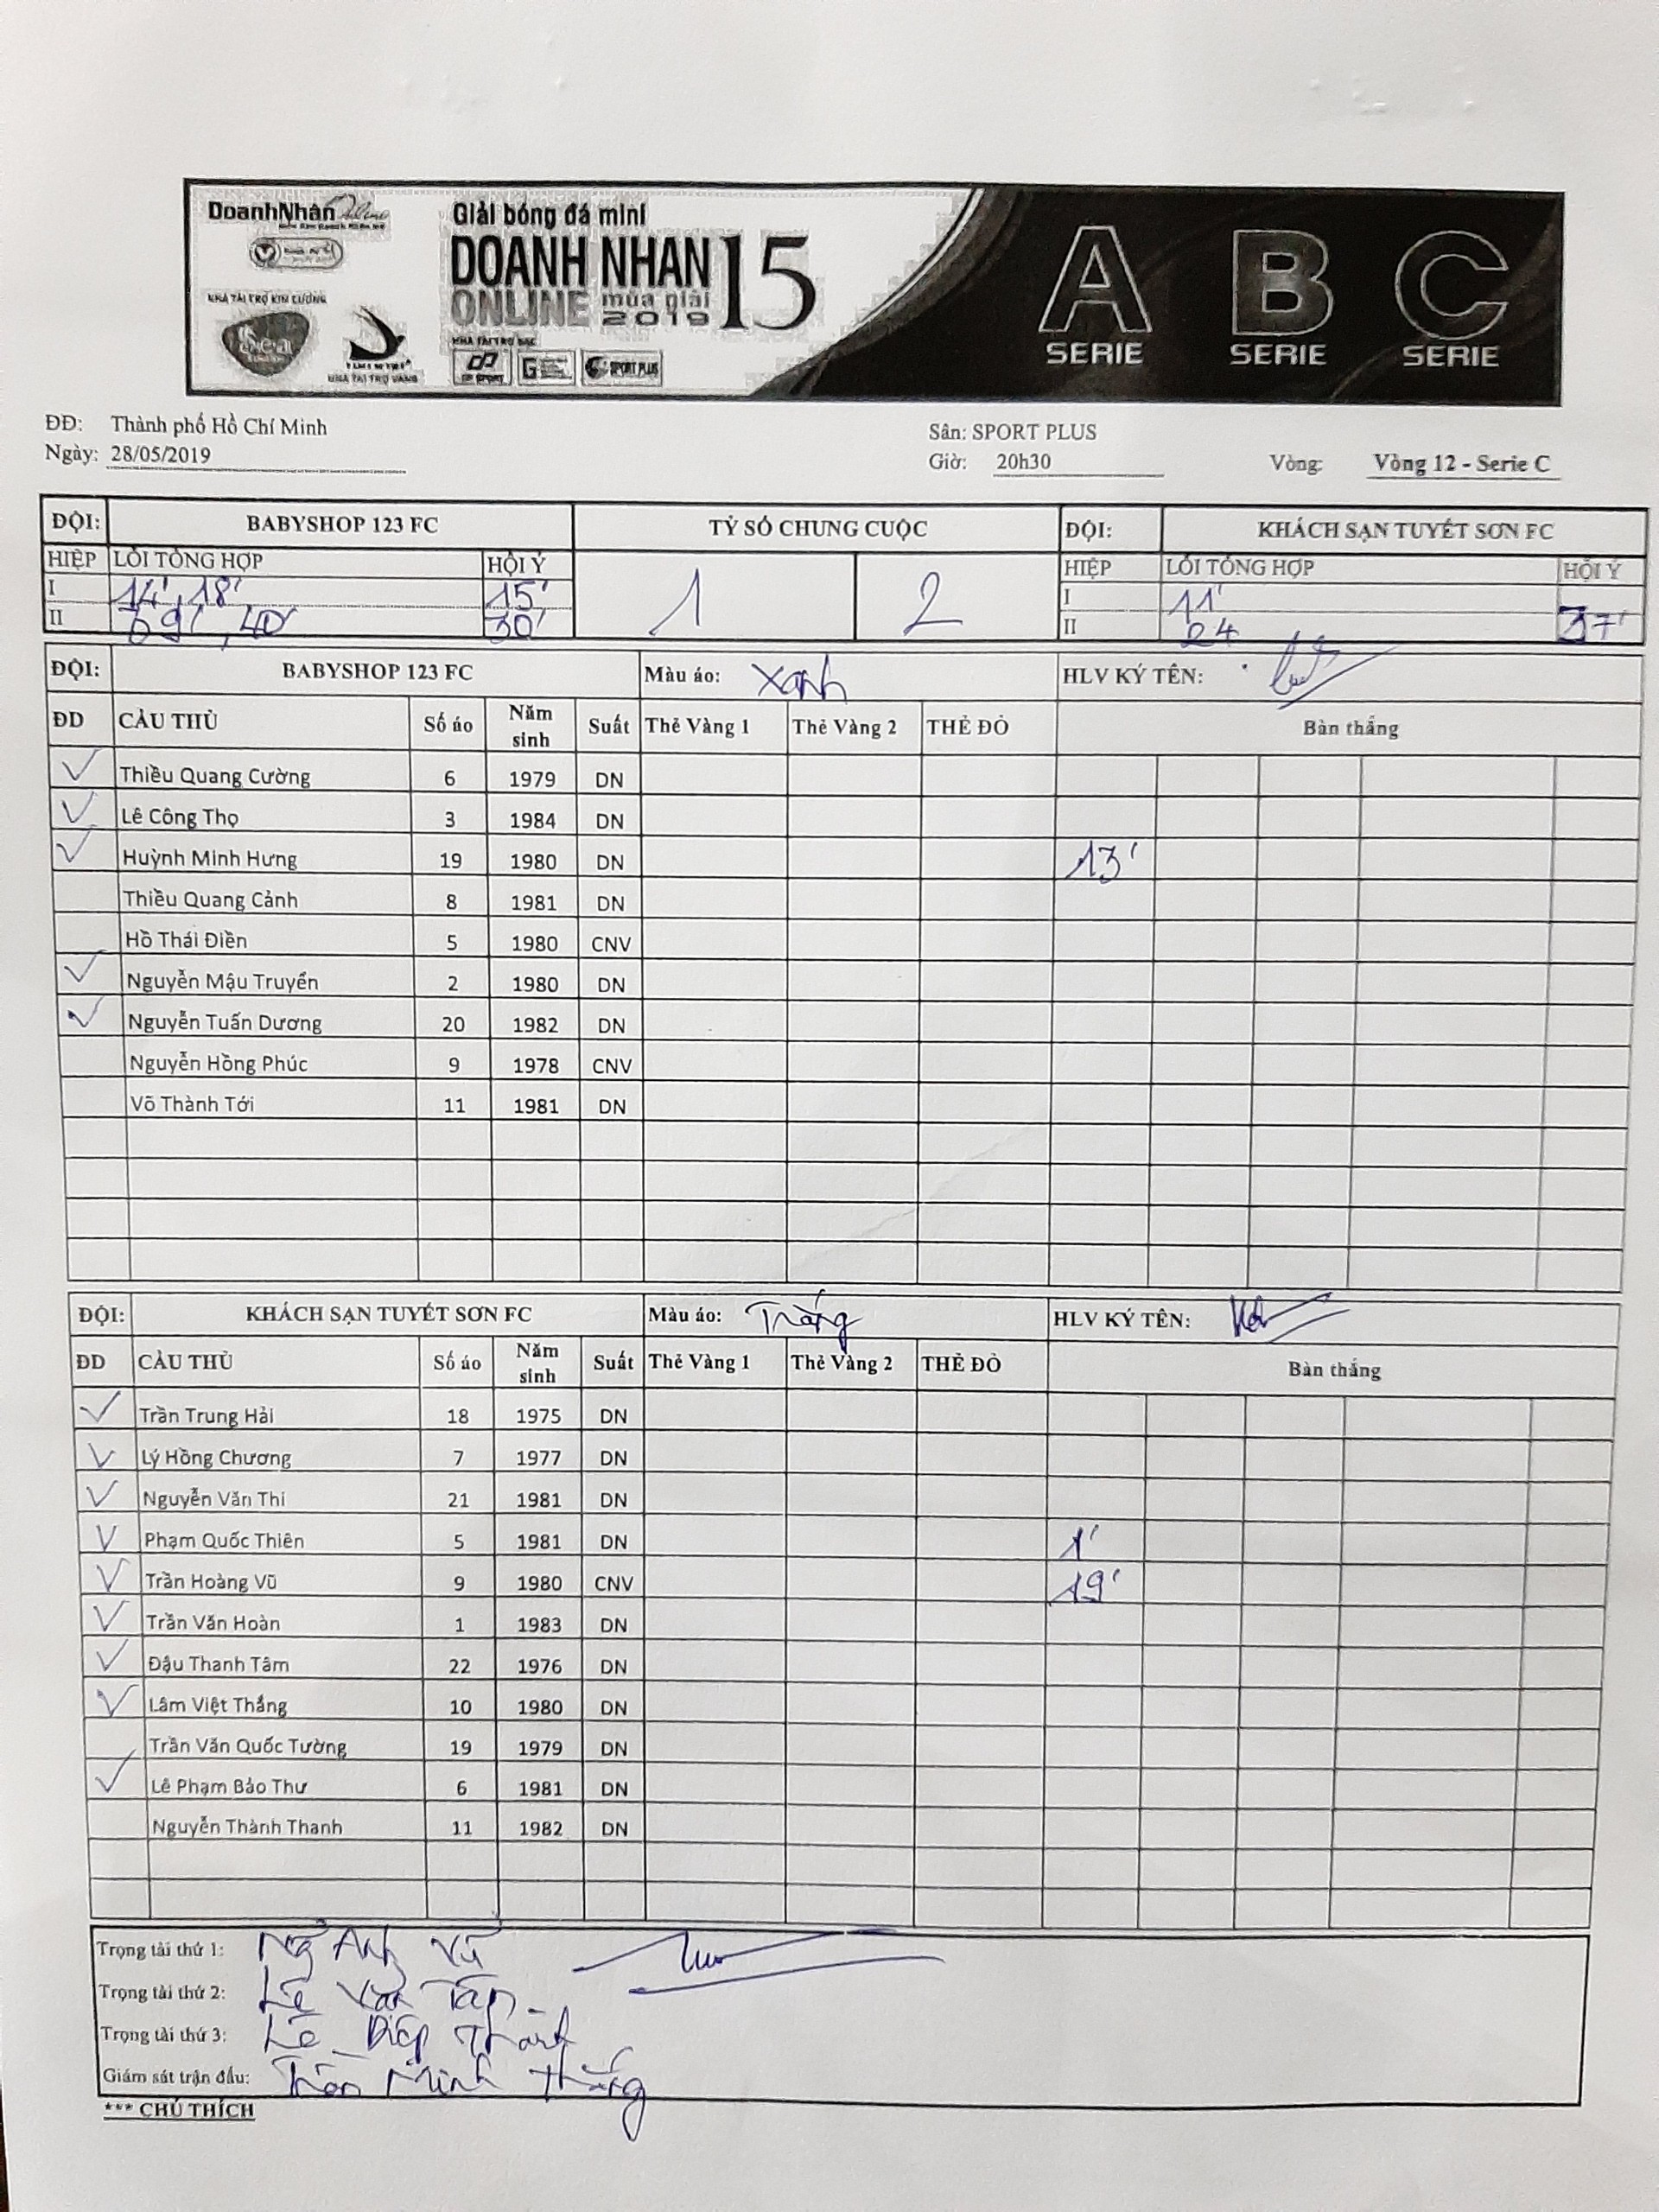 DoanhNhân Online
Giải bóng đá mini
DOANH NHAN 15
ONLINE mùa giải
2019
NHÀ TÀI TRỢ KIM CƯƠNG
NHÀ TÀI TRỢ VÀNG
NHÀ TÀI TRỢ BẠC
SPORT PLUS
A B C
SERIE SERIE SERIE
ĐĐ: Thành phố Hồ Chí Minh
Sân: SPORT PLUS
Ngày: 28/05/2019 Giờ: 20h30 Vòng: Vòng 12 - Serie C
ĐỘI: BABYSHOP 123 FC TỶ SỐ CHUNG CUỘC ĐỘI: KHÁCH SẠN TUYẾT SƠN FC
HIỆP LỖI TỔNG HỢP HỘI Ý 1 2 HIỆP LỖI TỔNG HỢP HỘI Ý
I 14', 18' 15' I 11'
II 39', 40' 30' II 24 37'
ĐỘI: BABYSHOP 123 FC Màu áo: Xanh HLV KÝ TÊN:
ĐD CẦU THỦ Số áo Năm sinh Suất Thẻ Vàng 1 Thẻ Vàng 2 THẺ ĐỎ Bàn thắng
Thiều Quang Cường 6 1979 DN
Lê Công Thọ 3 1984 DN
Huỳnh Minh Hưng 19 1980 DN 13'
Thiều Quang Cảnh 8 1981 DN
Hồ Thái Điền 5 1980 CNV
Nguyễn Mậu Truyển 2 1980 DN
Nguyễn Tuấn Dương 20 1982 DN
Nguyễn Hồng Phúc 9 1978 CNV
Võ Thành Tới 11 1981 DN
ĐỘI: KHÁCH SẠN TUYẾT SƠN FC Màu áo: Trắng HLV KÝ TÊN:
ĐD CẦU THỦ Số áo Năm sinh Suất Thẻ Vàng 1 Thẻ Vàng 2 THẺ ĐỎ Bàn thắng
Trần Trung Hải 18 1975 DN
Lý Hồng Chương 7 1977 DN
Nguyễn Văn Thi 21 1981 DN
Phạm Quốc Thiên 5 1981 DN 1'
Trần Hoàng Vũ 9 1980 CNV 19'
Trần Văn Hoàn 1 1983 DN
Đậu Thanh Tâm 22 1976 DN
Lâm Việt Thắng 10 1980 DN
Trần Văn Quốc Tường 19 1979 DN
Lê Phạm Bảo Thư 6 1981 DN
Nguyễn Thành Thanh 11 1982 DN
Trọng tài thứ 1: Ng Anh Vũ
Trọng tài thứ 2: Lê Văn Tấn
Trọng tài thứ 3: Lê Diệp Thành
Giám sát trận đấu: Trần Minh Thắng
*** CHÚ THÍCH